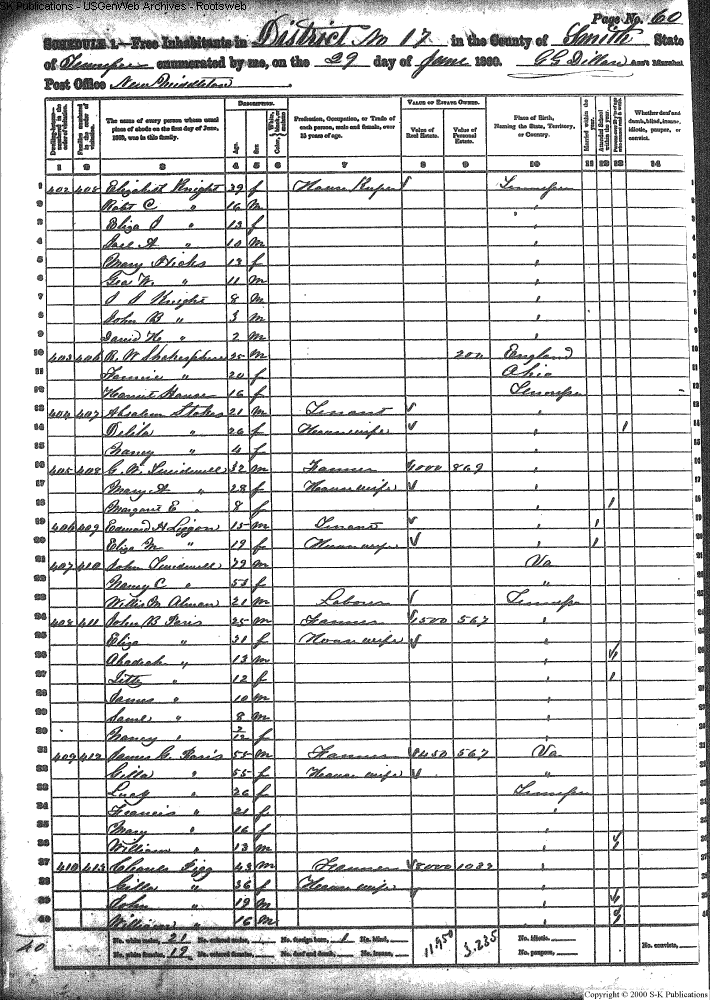 S-K Publications - USGenWeb Archives - Rootsweb
Page No. 60
SCHEDULE 1.—Free Inhabitants in District No 17 in the County of Smith State
of Tennessee enumerated by me, on the 29 day of June 1860. G G Dillon Ass't Marshal
Post Office New Middleton
DESCRIPTION.
VALUE OF ESTATE OWNED.
Dwelling-houses—numbered in the order of visitation.
Families numbered in the order of visitation.
The name of every person whose usual place of abode on the first day of June, 1860, was in this family.
Age.
Sex.
Color, White, black, or mulatto
Profession, Occupation, or Trade of each person, male and female, over 15 years of age.
Value of Real Estate.
Value of Personal Estate.
Place of Birth, Naming the State, Territory, or Country.
Married within the year.
Attended School within the year.
Whether deaf and dumb, blind, insane, idiotic, pauper, or convict.
1 2 3 4 5 6 7 8 9 10 11 12 13 14
1 402 405 Elizabeth Knight 39 f House Keeper Tennessee 1
2 Robt C " 16 m " 2
3 Eliza J " 13 f " 3
4 Joel A " 10 m " 4
5 Mary Hicks 13 f " 5
6 Geo W. " 11 m " 6
7 J J Knight 8 m " 7
8 John B " 3 m " 8
9 David H. " 2 m " 9
10 403 406 R. W Shakesphere 25 m 200 England 10
11 Fannie " 20 f Ohio 11
12 Harriet 16 f Tennessee 12
13 404 407 Absalem Stokes 21 m Tenant " 13
14 Delila " 26 f Housewife " 1 14
15 Nancy " 4 f " 15
16 405 408 G. W. 32 m Farmer 1000 869 " 16
17 Mary A " 28 f Housewife " 17
18 Margaret E " 8 f " 1 18
19 406 409 Edward H Ligon 15 m Tenant " 1 19
20 Eliza M " 19 f Housewife " 1 20
21 407 410 John 79 m Va 21
22 Nancy C " 53 f " 22
23 Willis M Alman 21 m Laborer Tennessee 23
24 408 411 John B Paris 25 m Farmer 1500 567 " 24
25 Eliza " 31 f Housewife " 25
26 " 13 m " 1 26
27 Letty " 12 f " 1 27
28 James " 10 m " 28
29 Saml " 8 m " 29
30 Nancy " f " 30
31 409 412 James G. Paris 55 m Farmer 1450 567 Va 31
32 Cilla " 55 f Housewife " 32
33 Lucy " 26 f Tennessee 33
34 Francis " 21 f " 34
35 Mary " 16 f 35
36 William " 13 m " 1 36
37 410 413 Charles Figg 43 m Farmer 8000 1032 " 37
38 Cilla " 36 f Housewife " 38
39 John " 19 m " 1 39
40 William " 16 m " 40
40
No. white males, 21 No. colored males, No. foreign born, 1 No. blind,
No. white females, 19 No. colored females, No. deaf and dumb, No. insane,
11,950 3,235
No. idiotic, No. paupers,
No. convicts,
Copyright © 2000 S-K Publications